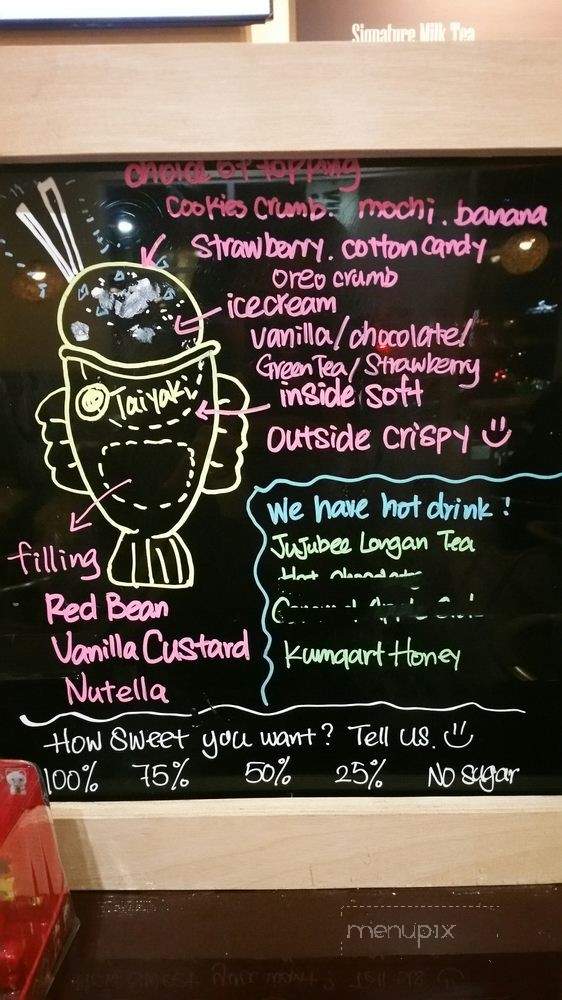 Signature Milk Tea
choice of topping
cookies crumb. mochi. banana
Strawberry. cotton candy
oreo crumb
icecream
vanilla/chocolate/
Green Tea/Strawberry
Taiyaki
inside soft
outside crispy
we have hot drink!
Jujubee Longan Tea
filling
Red Bean
Vanilla Custard
Kumqart Honey
Nutella
How Sweet you want? Tell us.
100% 75% 50% 25% No sugar
menupix